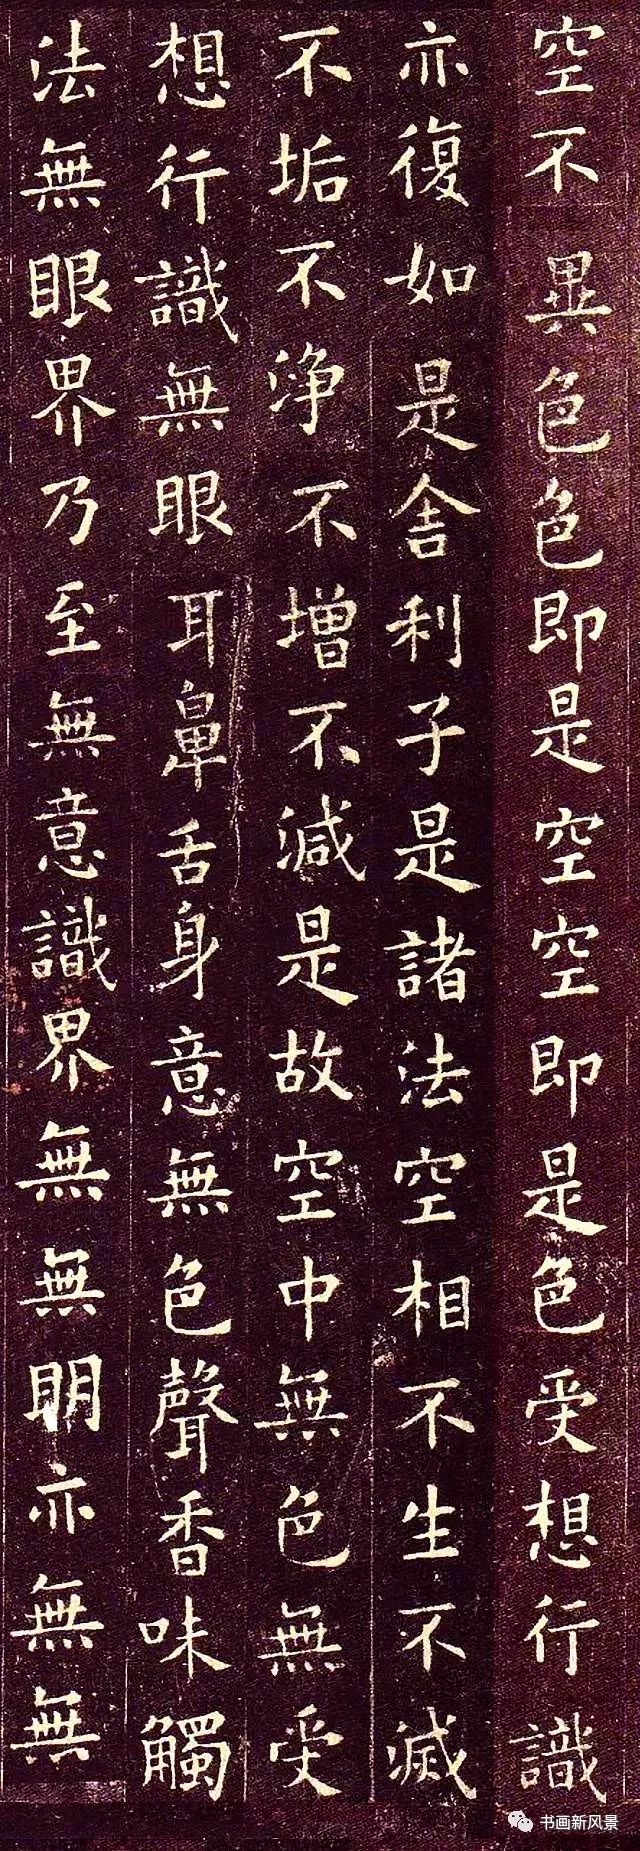 空不異色色即是空空即是色受想行識
亦復如是舍利子是諸法空相不生不滅
不垢不淨不增不減是故空中無色無受
想行識無眼耳鼻舌身意無色聲香味觸
法無眼界乃至無意識界無無明亦無無
书画新风景